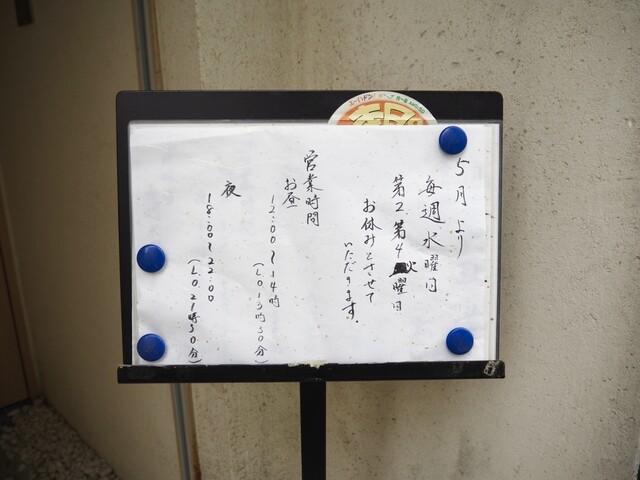 5月より
毎週水曜日
第2.第4火曜日
お休みとさせて
いただきます.
営業時間
お昼
12:00〜14時
(L.O.13時30分)
夜
18:00〜22:00
(L.O.21時30分)